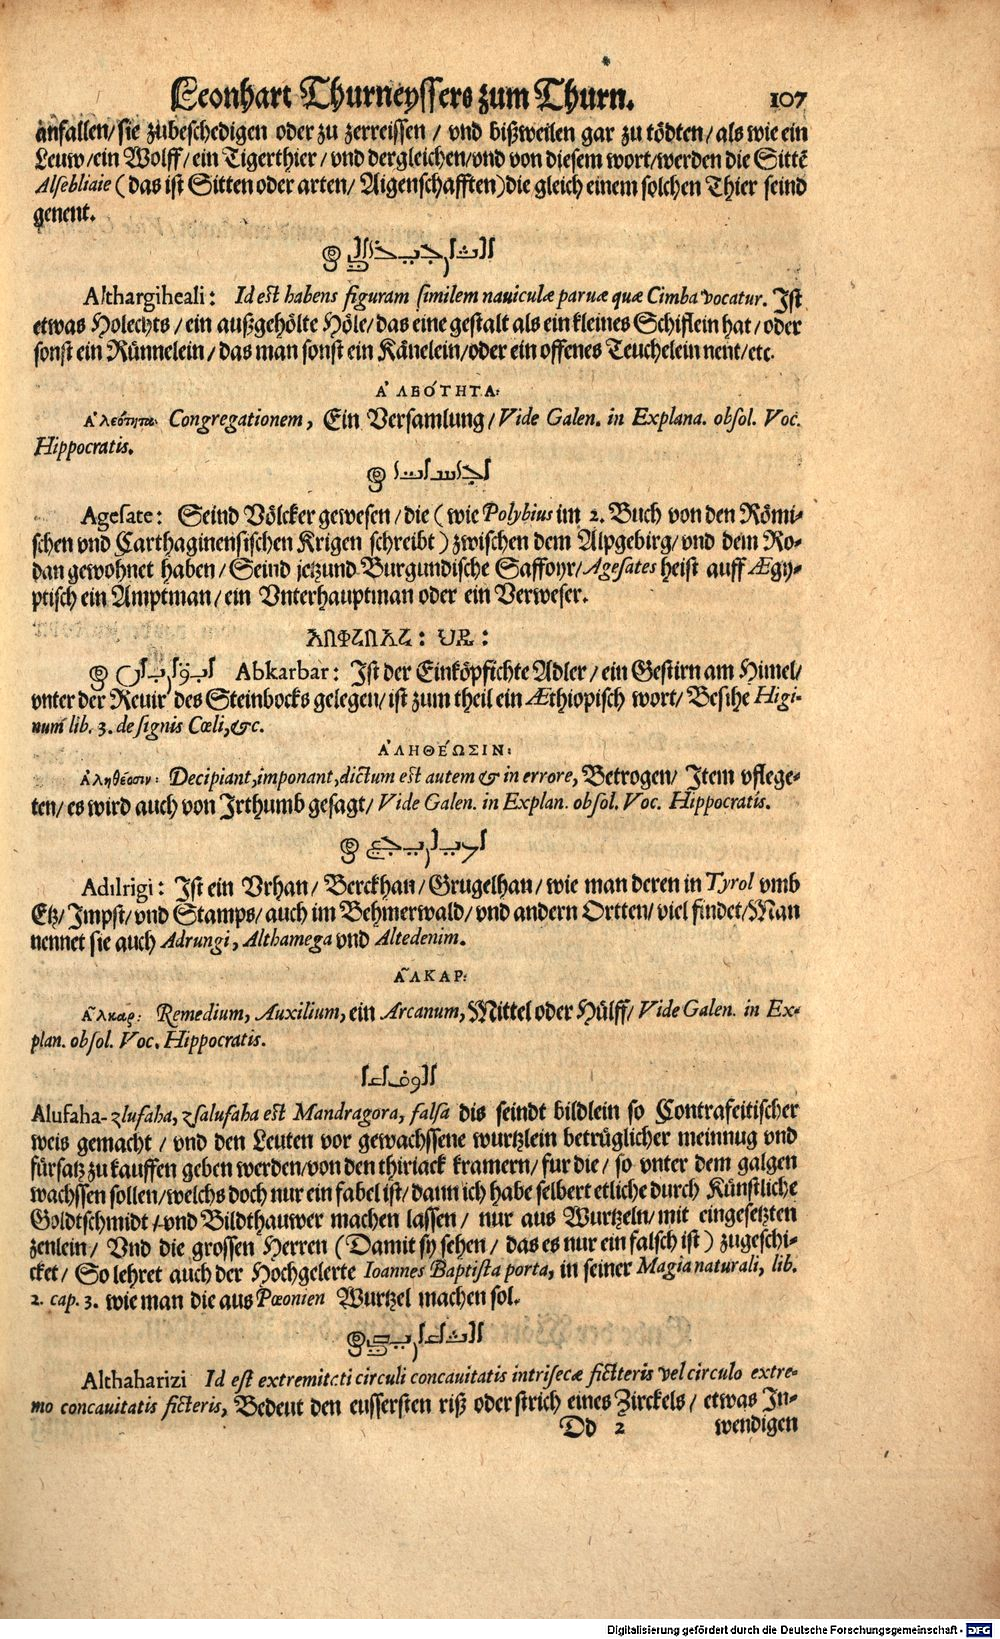 Leonhart Thurneyssers zum Thurn. 107
anfallen/sie zubeschedigen oder zu zerreissen / vnd bißweilen gar zu tödten/als wie ein
Leuw/ein Wolff/ein Tigerthier/vnd dergleichen/vnd von diesem wort/werden die Sittē
Alsebliaie (das ist Sitten oder arten/ Aigenschafften)die gleich einem solchen Thier seind
genent.
Althargiheali: Id est habens figuram similem nauiculæ paruæ quæ Cimba vocatur. Ist
etwas Holechts/ein außgehölte Höle/das eine gestalt als ein kleines Schiflein hat/oder
sonst ein Rünnelein/das man sonst ein Känelein/oder ein offenes Teuchelein nent/etc.
Congregationem, Ein Versamlung/Vide Galen. in Explana. obsol. Voc.
Hippocratis.
Agesate: Seind Völcker gewesen/die (wie Polybius im 2. Buch von den Römi-
schen vnd Carthaginensischen Krigen schreibt) zwischen dem Alpgebirg/vnd dem Ro-
dan gewohnet haben/Seind jetzund Burgundische Saffoyr/Agesates heist auff Ægy-
ptisch ein Amptman/ein Vnterhauptman oder ein Verweser.
Abkarbar: Ist der Einköpfichte Adler/ein Gestirn am Himel/
vnter der Reuir des Steinbocks gelegen/ist zum theil ein Æthiopisch wort/Besihe Higi-
num lib. 3. de signis Cœli,&c.
ἈΛΗΘΈΩΣΙΝ:
Decipiant,imponant,dictum est autem & in errore, Betrogen/ Item vflege-
ten/es wird auch von Irthumb gesagt/Vide Galen. in Explan. obsol. Voc. Hippocratis.
Adilrigi: Ist ein Vrhan/Berckhan/Grugelhan/wie man deren in Tyrol vmb
Etz/Impst/vnd Stamps/auch im Behmerwald/vnd andern Ortten/viel findet/Man
nennet sie auch Adrungi, Althamega vnd Altedenim.
ἌΛΚΑΡ:
ἄλκαρ: Remedium, Auxilium, ein Arcanum, Mittel oder Hülff/Vide Galen. in Ex-
plan. obsol. Voc. Hippocratis.
Alufaha- zlufaha, zsalufaha est Mandragora, falsa dis seindt bildlein so Contrafeitischer
weis gemacht / vnd den Leuten vor gewachssene wurtzlein betrüglicher meinnug vnd
fürsatz zu kauffen geben werden/von den thiriack kramern/fur die/ so vnter dem galgen
wachssen sollen/welchs doch nur ein fabel ist/dann ich habe selbert etliche durch Künstliche
Goldtschmidt/vnd Bildthauwer machen lassen/ nur aus Wurtzeln/mit eingesetzten
zenlein/ Vnd die grossen Herren (Damit sy sehen/ das es nur ein falsch ist) zugeschi-
cket/So lehret auch der Hochgelerte Ioannes Baptista porta, in seiner Magia naturali, lib.
2. cap. 3. wie man die aus Pœonien Wurtzel machen sol.
Althaharizi Id est extremitati circuli concauitatis intrisecæ fictteris vel circulo extre-
mo concauitatis ficteris, Bedeut den eussersten riß oder strich eines Zirckels/ etwas In-
Dd 2 wendigen
Digitalisierung gefördert durch die Deutsche Forschungsgemeinschaft - DFG